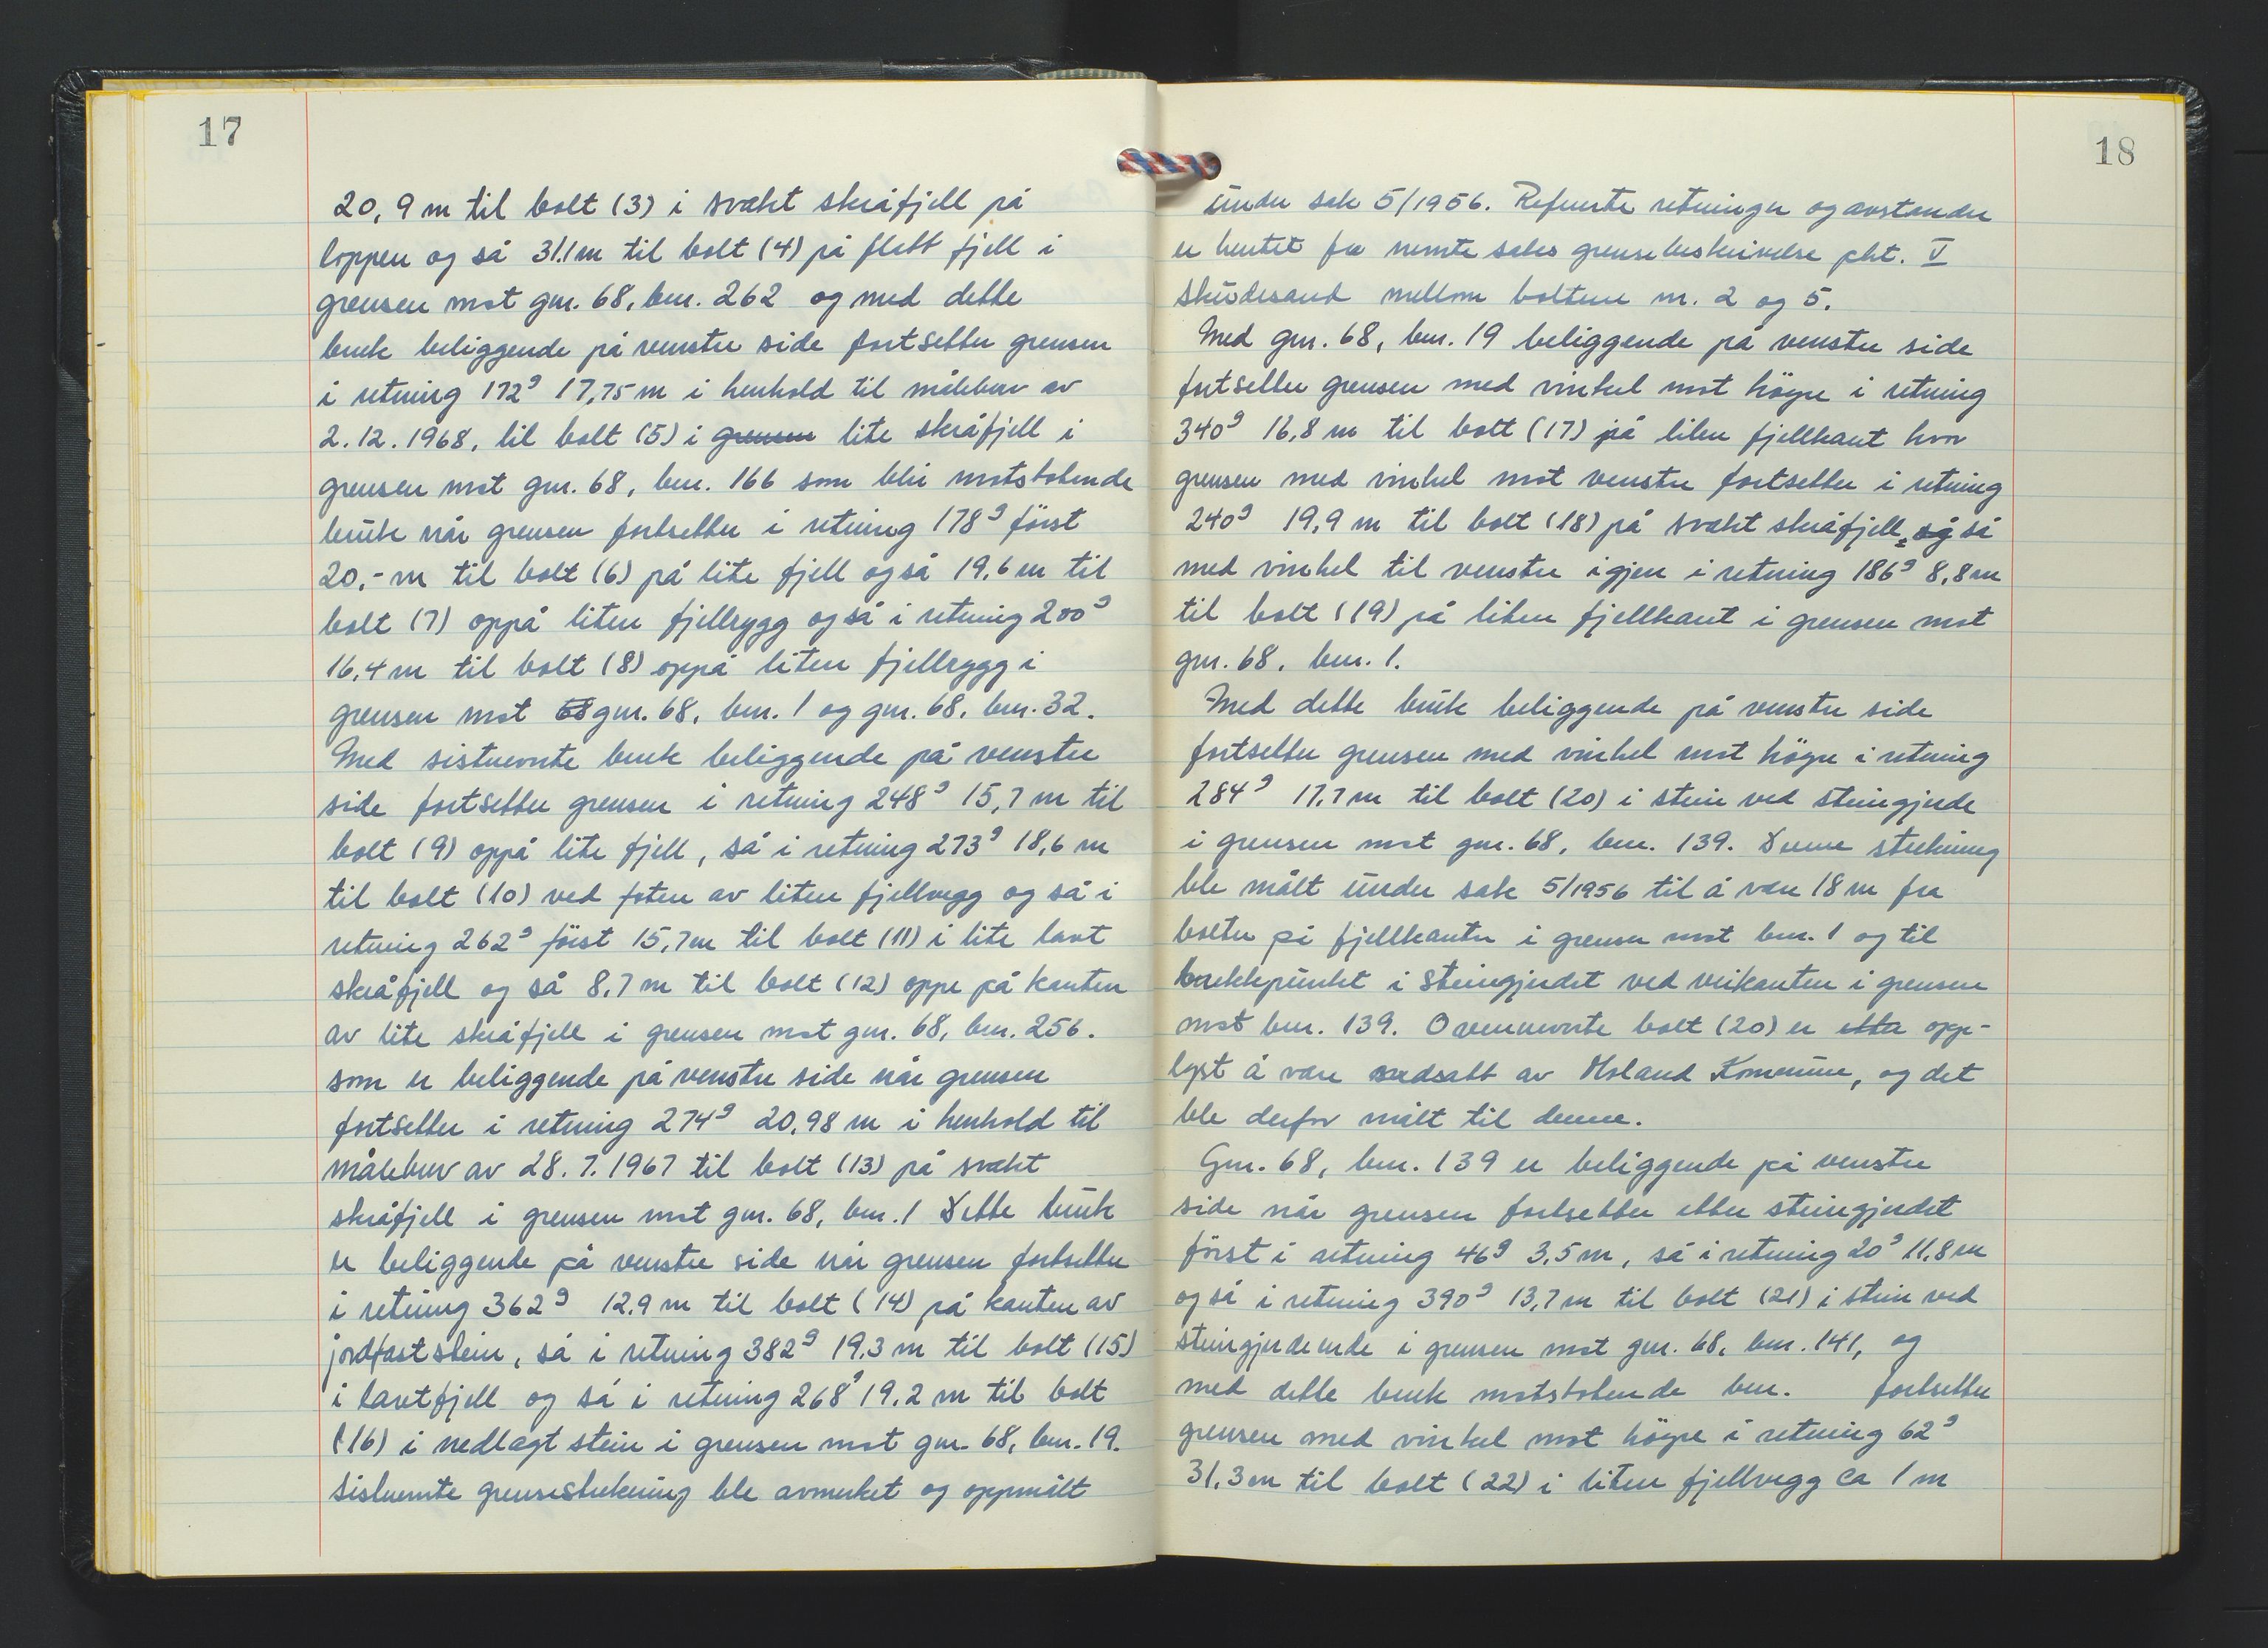 17
20,9 m til bolt (3) i svakt skråfjell på
loppen og så 31.1 m til bolt (4) på flatt fjell i
grensen mot gnr. 68, bnr. 262 og med dette
bruk beliggende på venstre side fortsetter grensen
i retning 172g 17,75 m i henhold til målebrev av
2.12.1968, til bolt (5) i grensen lite skråfjell i
grensen mot gnr. 68, bnr. 166 som blir motstøtende
bruk når grensen fortsetter i retning 178g först
20,- m til bolt (6) på lite fjell også 19,6 m til
bolt (7) oppå liten fjellrygg også i retning 200g
16,4 m til bolt (8) oppå liten fjellrygg i
grensen mot 68 gnr. 68, bnr. 1 og gnr. 68, bnr. 32.
Med sistnevnte bruk beliggende på venstre
side fortsetter grensen i retning 248g 15,7 m til
bolt (9) oppå lite fjell, så i retning 273g 18,6 m
til bolt (10) ved foten av liten fjellvegg og så i
retning 262g först 15,7 m til bolt (11) i lite lavt
skråfjell og så 8,7 m til bolt (12) oppe på kanten
av lite skråfjell i grensen mot gnr. 68, bnr. 256.
som er beliggende på venstre side når grensen
fortsetter i retning 274g 20,98 m i henhold til
målebrev av 28.7.1967 til bolt (13) på svakt
skråfjell i grensen mot gnr. 68, bnr. 1 Dette bruk
er beliggende på venstre side når grensen fortsetter
i retning 362g 12.9 m til bolt (14) på kanten av
jordfast stein, så i retning 382g 19.3 m til bolt (15)
i lavt fjell og så i retning 268g 19.2 m til bolt
(16) i nedlagt stein i grensen mot gnr. 68, bnr. 19.
Sistnevnte grensestrekning ble avmerket og oppmålt
18
under sak 5/1956. Refererte retninger og avstander
er hentet fra nevnte saks grensebeskrivelse pkt. V
Skudesand mellom boltene nr. 2 og 5.
Med gnr. 68, bnr. 19 beliggende på venstre side
fortsetter grensen med vinkel mot högre i retning
340g 16,8 m til bolt (17) på liten fjellkant hvor
grensen med vinkel mot venstre fortsetter i retning
240g 19,9 m til bolt (18) på svakt skråfjell, og så
med vinkel til venstre igjen i retning 186g 8,8 m
til bolt (19) på liten fjellkant i grensen mot
gnr. 68, bnr. 1.
Med dette bruk beliggende på venstre side
fortsetter grensen med vinkel mot högre i retning
284g 17.7 m til bolt (20) i stein ved steingjerde
i grensen mot gnr. 68, bnr. 139. Denne strekning
ble målt under sak 5/1956 til å være 18 m fra
bolten på fjellkanten i grensen mot bnr. 1 og til
brekkpunkt i steingjerdet ved veikanten i grensen
mot bnr. 139. Ovennevnte bolt (20) er etter opp-
lyst å være nedsatt av Moland Kommune, og det
ble derfor målt til denne.
Gnr. 68, bnr. 139 er beliggende på venstre
side når grensen fortsetter etter steingjerdet
först i retning 46g 3.5 m, så i retning 20g 11,8 m
og så i retning 390g 13,7 m til bolt (21) i stein ved
steingjerdeende i grensen mot gnr. 68, bnr. 141, og
med dette bruk motstøtende bnr. fortsetter
grensen med vinkel mot högre i retning 62g
31.3 m til bolt (22) i liten fjellvegg ca 1 m